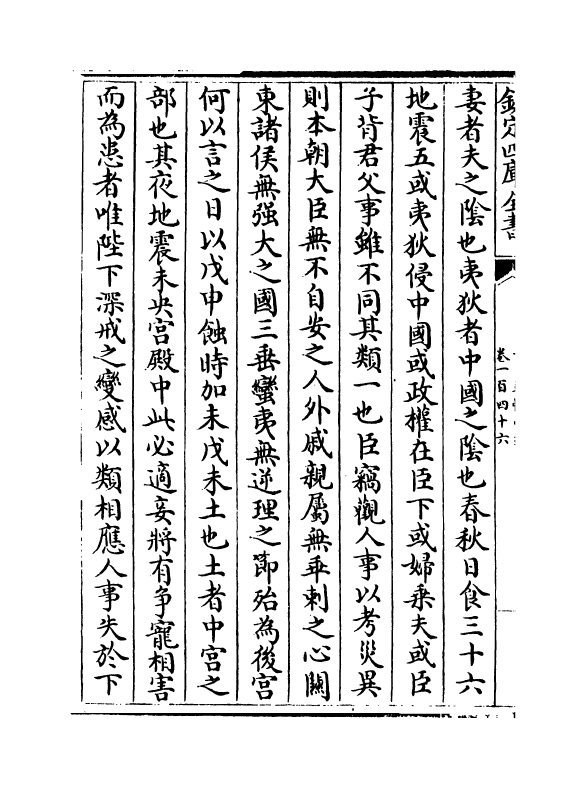 欽定四庫全書
卷一百四十六
妻者夫之陰也夷狄者中國之陰也春秋日食三十六
地震五或夷狄侵中國或政權在臣下或婦乘夫或臣
子背君父事雖不同其類一也臣竊觀人事以考災異
則本朝大臣無不自安之人外戚親屬無乖剌之心關
東諸侯無强大之國三垂蠻夷無逆理之節殆為後宮
何以言之日以戊申蝕時加未戊未土也土者中宮之
部也其夜地震未央宮殿中此必適妾將有争寵相害
而為患者唯陛下深戒之變感以類相應人事失於下